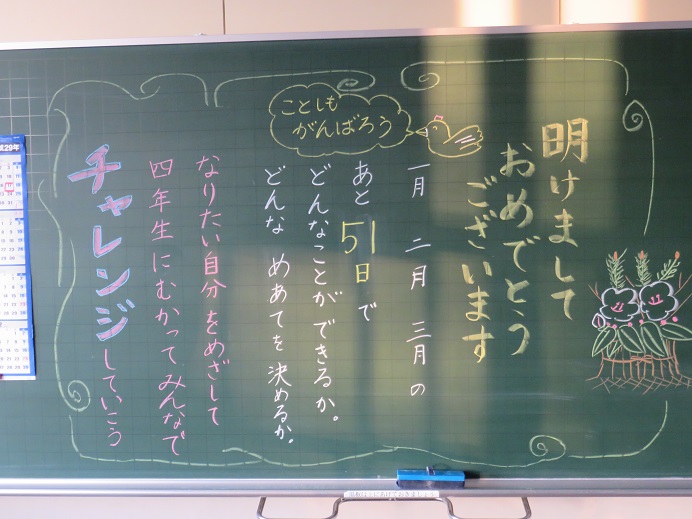 明けまして
おめでとう
ございます
ことしも
がんばろう
一月 二月 三月の
あと51日で
どんなことができるか。
どんな めあてを決めるか。
なりたい自分をめざして
四年生にむかってみんなで
チャレンジしていこう
29年